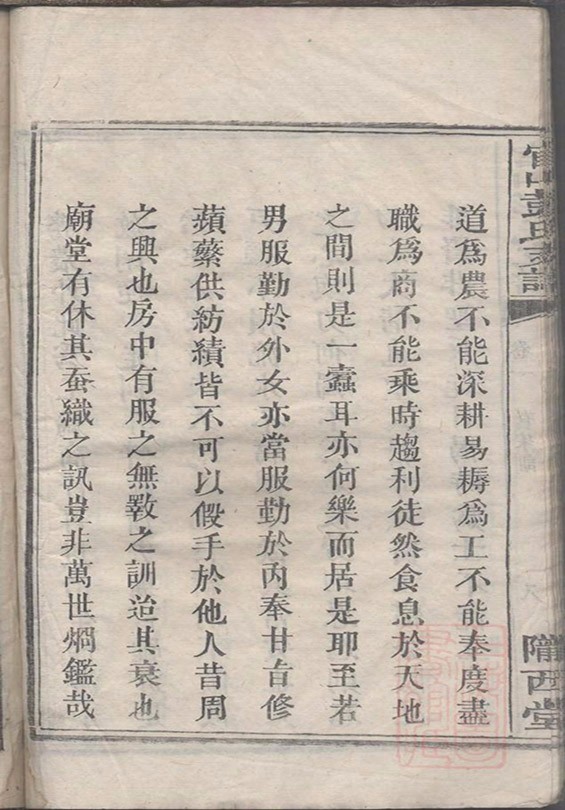 彭氏支譜
隴西堂
道爲農不能深耕易耨爲工不能奉度盡
職爲商不能乘時趨利徒然食息於天地
之間則是一蠹耳亦何樂而居是耶至若
男服勤於外女亦當服勤於內奉甘旨修
蘋蘩供紡績皆不可以假手於他人昔周
之興也房中有服之無斁之訓迨其衰也
廟堂有休其蚕織之訊豈非萬世烱鑑哉